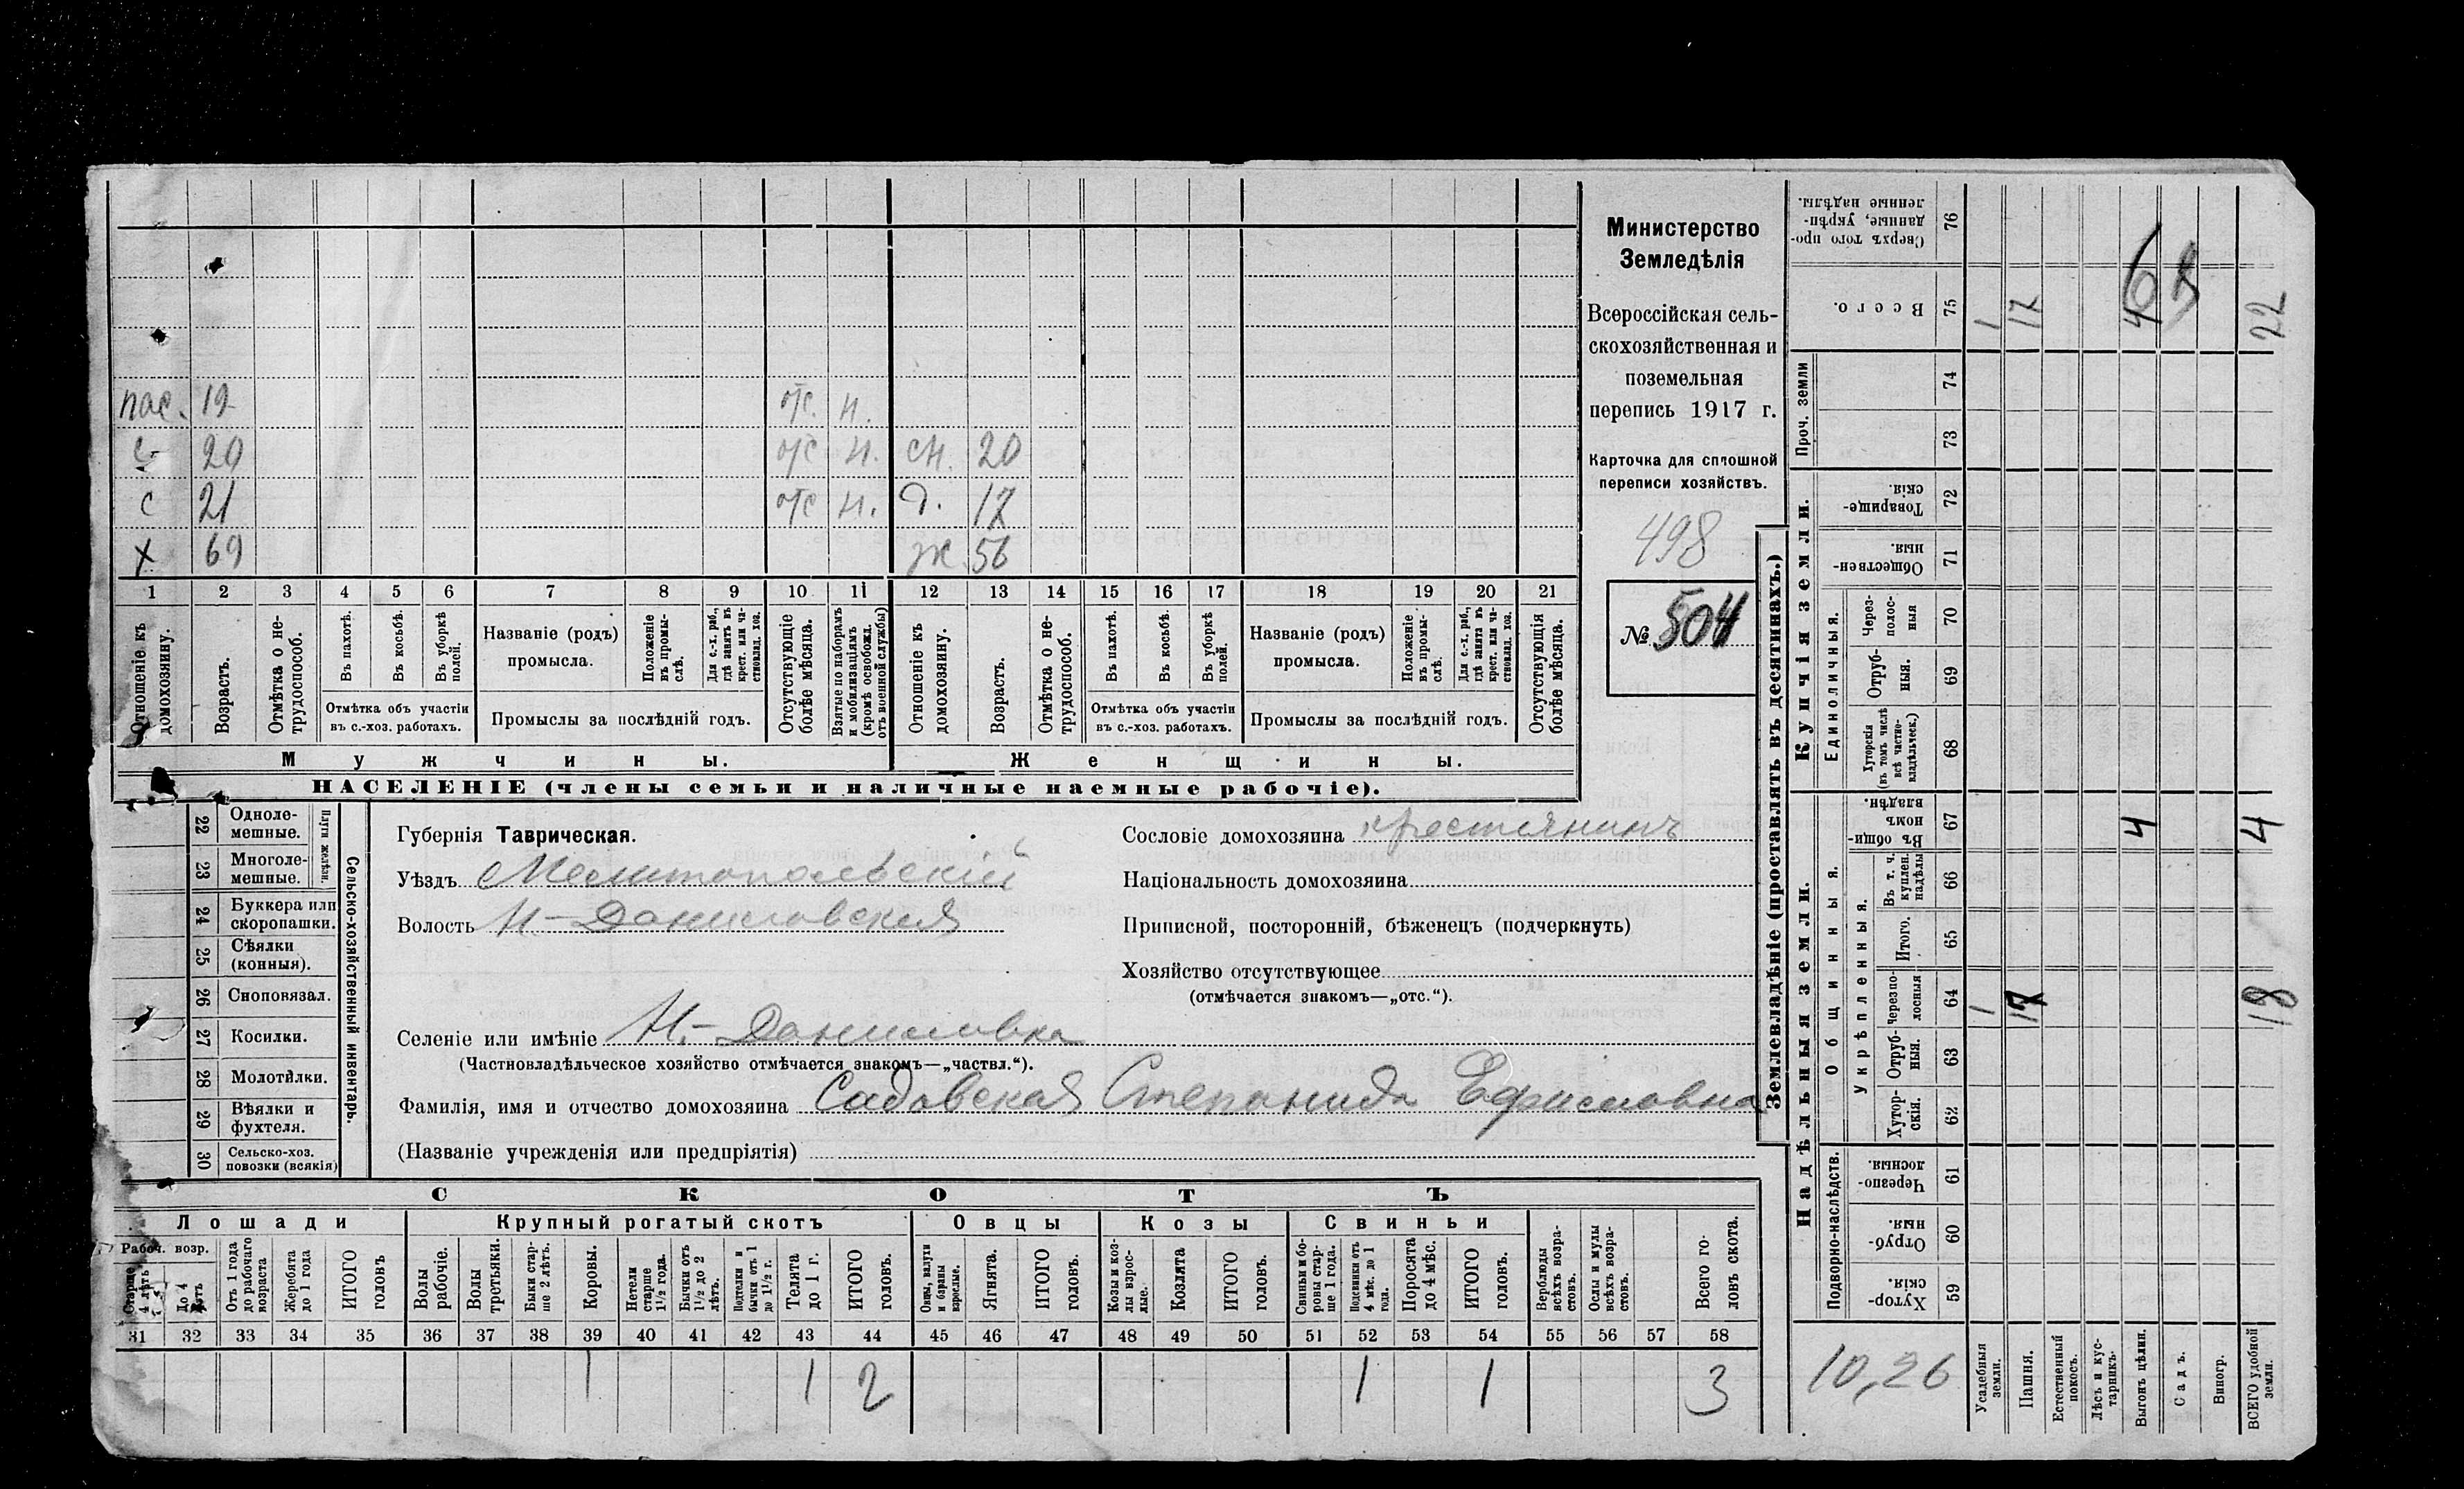 пас. 19 отс. н.
с 20 отс н. сн. 20
с 21 отс н. д. 17
х 69 ж. 56
1 2 3 4 5 6 7 8 9 10 11 12 13 14 15 16 17 18 19 20 21
Отношеніе къ домохозяину.
Возрастъ.
Отмѣтка о не-трудоспособ.
Въ пахотѣ.
Въ косьбѣ.
Въ уборкѣ полей.
Отмѣтка объ участіи
въ с.-хоз. работахъ.
Названіе (родъ)
промысла.
Положеніе въ промы-слѣ.
Для с.-х. раб., гдѣ занятъ въ крест. или ча-стновлад. хоз.
Промыслы за послѣдній годъ.
Отсутствующіе болѣе мѣсяца.
Взятые по наборамъ и мобилизаціямъ (кромѣ освобожд. отъ военной службы)
Отношеніе къ домохозяину.
Возрастъ.
Отмѣтка о не-трудоспособ.
Въ пахотѣ.
Въ косьбѣ.
Въ уборкѣ полей.
Отмѣтка объ участіи
въ с.-хоз. работахъ.
Названіе (родъ)
промысла.
Положеніе въ промы-слѣ.
Для с.-х. раб., гдѣ занята въ крест. или ча-стновлад. хоз.
Промыслы за послѣдній годъ.
Отсутствующія болѣе мѣсяца.
Мужчины. Женщины.
НАСЕЛЕНІЕ (члены семьи и наличные наемные рабочіе).
Министерство
Земледѣлія
Всероссійская сель-
скохозяйственная и
поземельная
перепись 1917 г.
Карточка для сплошной
переписи хозяйствъ.
498
№ 504
Сельско-хозяйственный инвентарь.
Плуги желѣзн.
22 Одноле-мешные.
23 Многоле-мешные.
24 Буккера или скоропашки.
25 Сѣялки (конныя).
26 Сноповязал.
27 Косилки.
28 Молотилки.
29 Вѣялки и фухтеля.
30 Сельско-хоз. повозки (всякія)
Губернія Таврическая.
Уѣздъ Мелитопольскій
Волость Н-Даниловская
Сословіе домохозяина крестьянинъ
Національность домохозяина
Приписной, посторонній, бѣженецъ (подчеркнуть)
Хозяйство отсутствующее
(отмѣчается знакомъ—„отс.“).
Селеніе или имѣніе Н.-Даниловка
(Частновладѣльческое хозяйство отмѣчается знакомъ—„частвл.“).
Фамилія, имя и отчество домохозяина Садовская Степанида Ефимовна
(Названіе учрежденія или предпріятія)
СКОТЪ
Лошади Крупный рогатый скотъ Овцы Козы Свиньи
Рабоч. возр.
Старше 4 лѣтъ
До 4 лѣтъ
Отъ 1 года до рабочаго возраста
Жеребята до 1 года
ИТОГО головъ
Волы рабочіе.
Волы третьяки.
Быки стар-ше 2 лѣтъ.
Коровы.
Нетели старше 1½ года.
Бычки отъ 1½ до 2 лѣтъ.
Подтелки и бычки отъ 1 до 1½ г.
Телята до 1 г.
ИТОГО головъ.
Овцы, валухи и бараны взрослые.
Ягнята.
ИТОГО головъ.
Козы и коз-лы взрос-лые.
Козлята
ИТОГО головъ.
Свиньи и бо-ровы стар-ше 1 года.
Подсвинки отъ 4 мѣс. до 1 года.
Поросята до 4 мѣс.
ИТОГО головъ.
Верблюды всѣхъ возра-стовъ.
Ослы и мулы всѣхъ возра-стовъ.
Всего го-ловъ скота.
31 32 33 34 35 36 37 38 39 40 41 42 43 44 45 46 47 48 49 50 51 52 53 54 55 56 57 58
1 1 2 1 1 3
Землевладѣніе (проставлять въ десятинахъ.)
76 Сверхъ того про-данные, укрѣп-ленные надѣлы.
75 Всего. 1 17 4 22
Проч. земли
74
73
Купчія земли.
72 Товарище-скія.
71 Обществен-ныя.
Единоличныя.
70 Через-полос-ныя
69 Отруб-ныя.
68 Хуторскія (въ томъ числѣ всѣ частно-владѣльческ.)
Надѣльныя земли.
Общинныя.
67 Въ общи-номъ владѣн. 4 4
Укрѣпленныя.
66 Въ т. ч. куплен. надѣлы
65 Итого.
64 Черезпо-лосныя 1 17 18
63 Отруб-ныя.
62 Хутор-скія.
Подворно-наслѣдств.
61 Черезпо-лосныя.
60 Отруб-ныя.
59 Хутор-скія.
10,26
Усадебныя земли.
Пашня.
Естественный покосъ.
Лѣсъ и кус-тарникъ.
Выгонъ цѣлин.
Садъ.
Виногр.
ВСЕГО удобной земли.